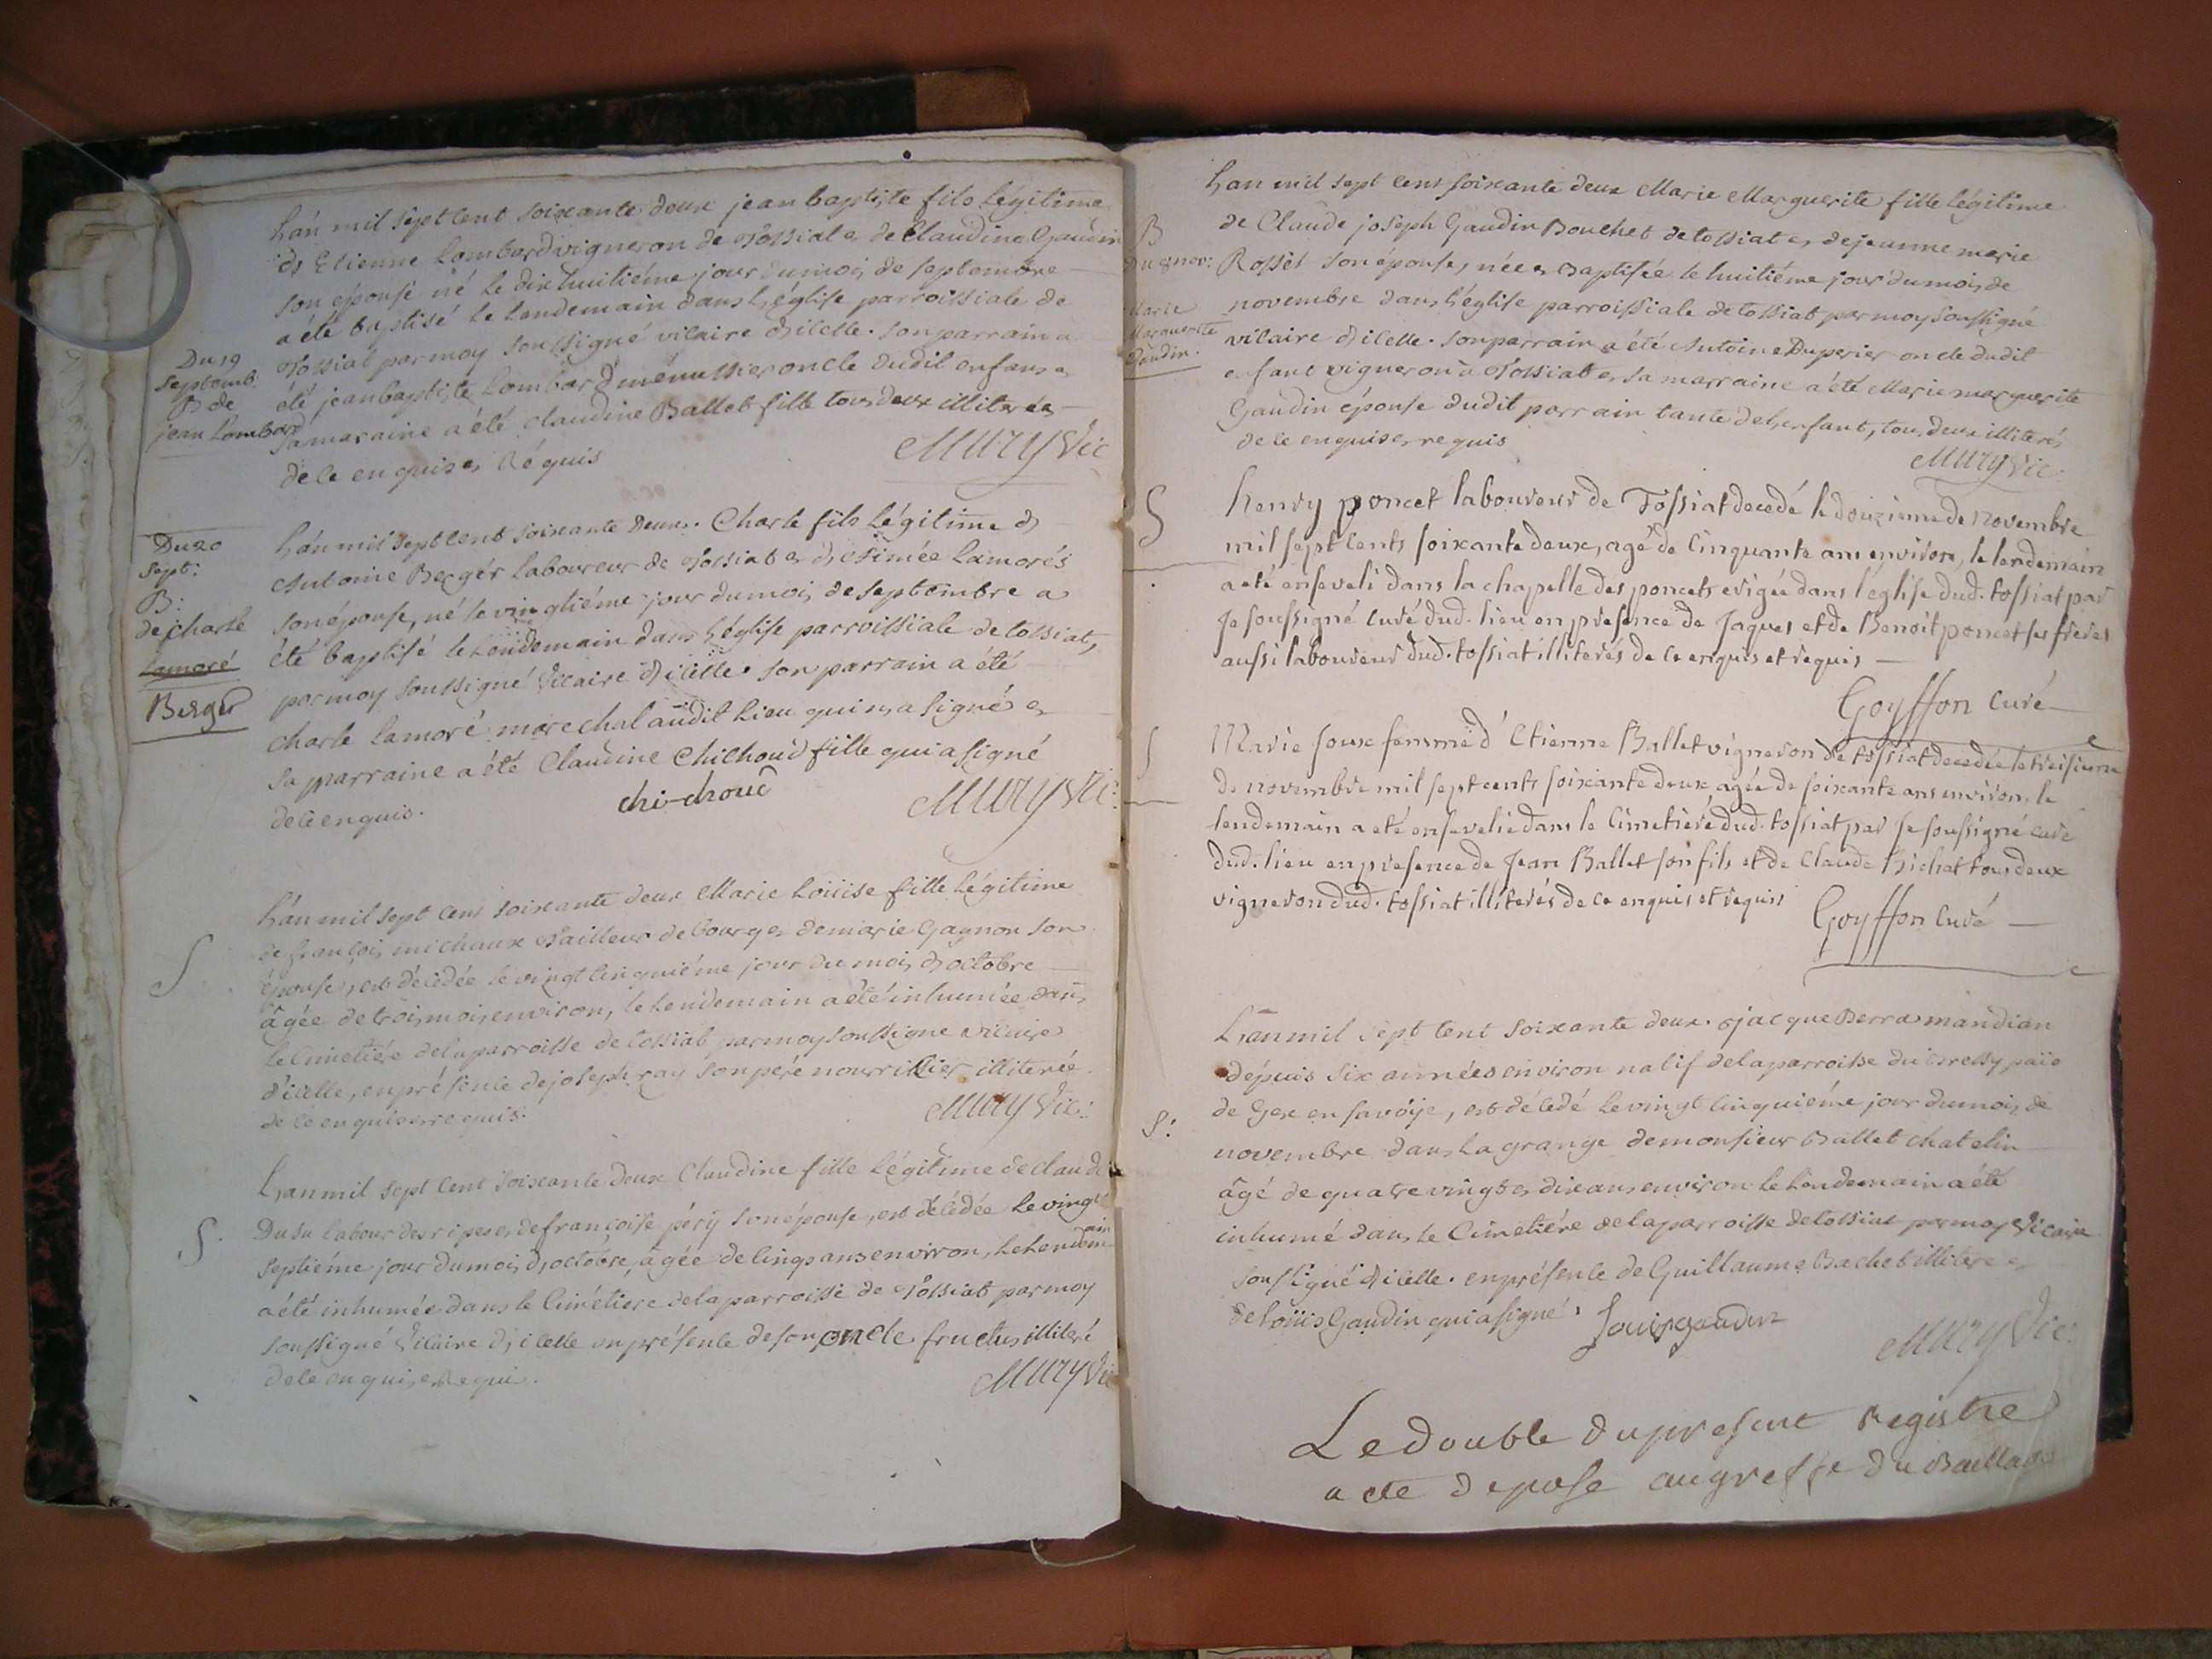 L'an mil sept cent soixante deux jean baptiste fils légitime
d'Etienne Lombard vigneron de Tossiat et de Claudine Gaudin
son épouse né le dix huitiéme jour du mois de septembre
a été baptisé le lendemain dans l'église parroissiale de
Tossiat par moy soussigné vicaire d'icelle. son parrain a
été jean baptiste Lombard ménussier oncle dudit enfans et
sa maraine a été claudine Ballet fille tous deux illiterés
de ce enquis et réquis
Mury Vic
Du 19
Septemb.
B de
jean Lombard
L'an mil sept cent soixante deux. Charle fils légitime d'
Antoine Bergér laboureur de Tossiat et d'Aimée Lamorés
son épouse, né le vingtiéme jour du mois de septembre a
été baptisé le lendemain dans l'église parroissiale de tossiat,
par moy soussigné Vicaire d'icelle. son parrain a été
charle Lamoré marechal audit Lieu qui a signé et
sa marraine a été Claudine Chichoud fille qui a signé
de ce enquis.
chi-choud
Mury Vic:
Du 20
Sept:
B:
de charle
Lamoré
Berger
L'an mil sept cent soixante deux Marie Loüise fille légitime
de françois michaux Tailleur de bourg et de marie Gagnon son
épouse, est décédée le vingt cinquiéme jour du mois d'octobre
âgée de trois mois environ, le lendemain a été inhumée dans
le Cimetiére de la parroisse de tossiat par moy soussigné vicaire
d'icelle, en présence de joseph ray son pere nourrissier illiterée
de ce enquis et requis.
Mury Vic:
S
L'an mil sept cent soixante deux Claudine fille légitime de claude
Dusu labour des ripes et de françoise péry son épouse, est décédée le vingt
septiéme jour du mois d'octobre, âgée de cinqs ans environ, le lendemain
a été inhumée dans le Cimétiere de la parroisse de Tossiat par moy
soussigné Vicaire d'icelle en présence de son oncle fructus illiteré
de ce enquis et requi.
Mury Vic
S.
L'an mil sept cent soixante deux Marie Marguerite fille légitime
de Claude joseph Gaudin Bouchet de tossiat et de jeanne marie
Rosset son épouse, née et Baptisée le huitiéme jour du mois de
novembre dans l'église parroissiale de tossiat par moy soussigné
vicaire d'icelle. son parrain a été Antoine Duperier oncle dudit
enfant vigneron à Tossiat et sa marraine a été Marie marguerite
Gaudin épouse dudit parrain tante de l'enfant, tous deux illiterés
de ce enquis et requis
Mury Vic:
B
Du 8 nov:
Marie
Marguerite
Gaudin.
S
henry poncet laboureur de Tossiat decedé le douzieme de Novembre
mil sept cents soixante deux, agé de cinquante ans environ, le lendemain
a eté enseveli dans la chapelle des poncets erigée dans l'église dud. tossiat par
Je soussigné curé dud. lieu en presence de Jaques et de Benoit poncet ses freres
aussi laboureur dud. tossiat illiterés de ce enquis et requis
Goyffon curé
S
Marie joux femme d'Etienne Ballet vigneron de tossiat decedée le treisieme
de novembre mil sept cents soixante deux, agée de soixante ans environ, le
lendemain a eté ensevelie dans le cimetiére dud. tossiat par Je soussigné curé
dud. lieu en presence de Jean Ballet son fils et de claude Bichat tous deux
vigneron dud. tossiat illiterés de ce enquis et requis
Goyffon curé
L'an mil sept cent soixante deux. jacque Derra mandian
dépuis six années environ natif de la parroisse du païs
de Gex en savóije, est décedé le vingt cinquiéme jour du mois de
novembre dans la grange de monsieur Ballet chatelin
âgé de quatre vingts et dix ans environ le lendemain a été
inhumé dans le Cimetiére de la parroisse de tossiat par moy Vicaire
soussigné d'icelle. en présence de Guillaume Bachet illiteré et
de Loüis Gaudin qui a signé. Louis gaudin
Mury Vic:
S:
Le double du present Registre
a ete depose au greffe du Baillage